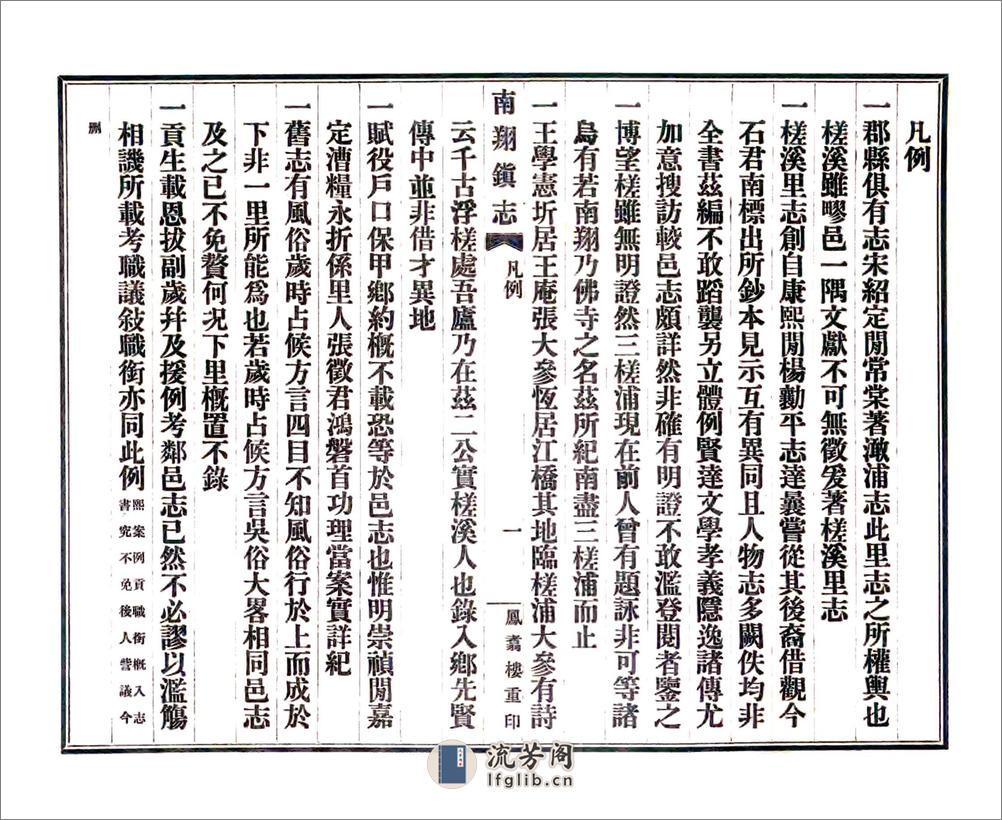 凡例
一郡縣俱有志宋紹定閒常棠著澉浦志此里志之所權輿也
槎溪雖嘐邑一隅文獻不可無徵爰著槎溪里志
一槎溪里志創自康熙閒楊勷平志達曩嘗從其後裔借觀今
石君南標出所鈔本見示互有異同且人物志多闕佚均非
全書茲編不敢蹈襲另立體例賢達文學孝義隱逸諸傳尤
加意搜訪較邑志頗詳然非確有明證不敢濫登閱者鑒之
一博望槎雖無明證然三槎浦現在前人曾有題詠非可等諸
烏有若南翔乃佛寺之名茲所紀南盡三槎浦而止
一王學憲圻居王庵張大參恆居江橋其地臨槎浦大參有詩
南翔鎮志
凡例
一
鳳翥樓重印
云千古浮槎處吾廬乃在茲二公實槎溪人也錄入鄉先賢
傳中並非借才異地
一賦役戶口保甲鄉約槪不載恐等於邑志也惟明崇禎閒嘉
定漕糧永折係里人張徵君鴻磐首功理當案實詳紀
一舊志有風俗歲時占候方言四目不知風俗行於上而成於
下非一里所能爲也若歲時占候方言吳俗大畧相同邑志
及之已不免贅何况下里槪置不錄
一貢生載恩拔副歲幷及援例考鄰邑志已然不必謬以濫觴
相譏所載考職議敍職銜亦同此例
熙案例貢職銜槪入志
書究不免後人訾議今
刪
流芳阁
lfglib.cn